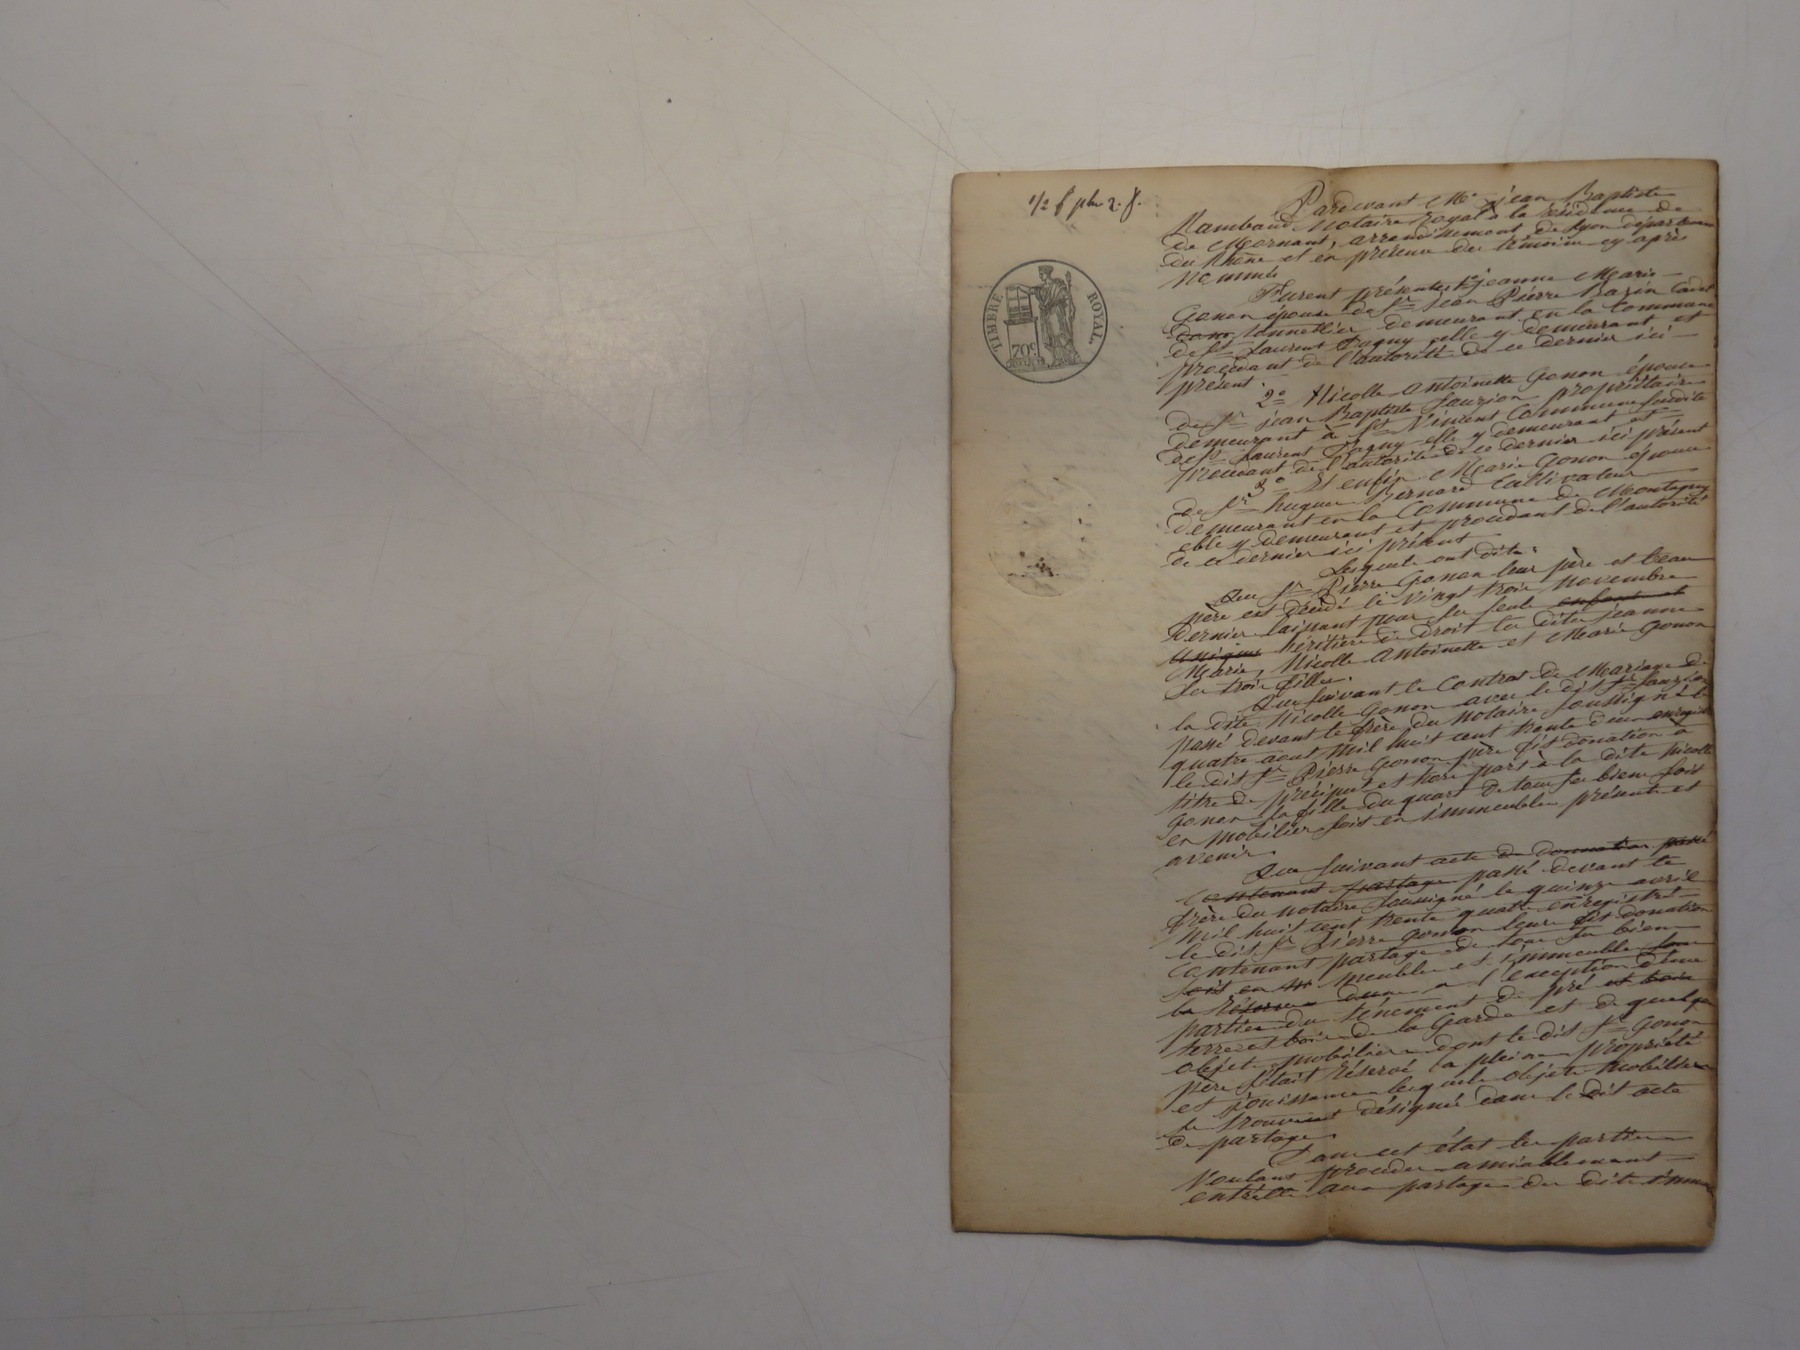 1/2 f plus 2. f.
TIMBRE ROYAL
70c
Pardevant Me jean Baptiste
Rambaud Notaire Royal à la résidence de
de Mornant, arrondissement de Lyon département
du Rhône et en présence des témoins cy après
nommés
Furent présentes 1° jeanne Marie
Gonon épouse de Sr jean Pierre Bazin
tonnellier demeurant en la Commune
de St Laurent Dagny elle y demeurant et
procédant de l'autorité de ce dernier ici
présent.
2° Nicolle Antoinette Gonon épouse
de Sr jean Baptiste Lauzion propriétaire
demeurant à St Vincent Commune susdite
de St Laurent Dagny elle y demeurant et
procédant de l'autorité de ce dernier ici présent
3° Et enfin Marie Gonon épouse
de Sr hugues Bernard Cultivateur
demeurant en la Commune de Montagny
elle y demeurant et procédant de l'autorité
de ce dernier ici présent
Lesquels ont dit:
Que Sr Pierre Gonon leur père et beau
père est décédé le vingt trois novembre
dernier laissant pour ses seuls enfants et
uniques héritiers de droit les dites jeanne
Marie, Nicolle Antoinette et Marie Gonon
ses trois filles.
Que suivant le Contrat de Mariage de
la dite Nicolle Gonon avec le dit Sr Lauzion
passé devant le frère du Notaire soussigné le
quatre aout mil huit cent trente deux enregistré
le dit Sr Pierre Gonon père fit donation à
titre de préciput et hors part à la dite Nicolle
Gonon sa fille du quart de tous ses biens soit
en mobilier soit en immeubles présents et
avenir.
Que suivant acte de donnation passé
Contenant partage passé devant le
frère du notaire soussigné le quinze avril
mil huit cent trente quatre enregistré
le dit Sr Pierre Gonon leurs fit donation
Contenant partage de tous ses biens
soit en meubles et immeubles sous
la réserve d'une a l'exception d'une
partie du ténement de pré et bois
terre et bois de la Garde et de quelques
objets mobiliers dont le dit Sr Gonon
père s'était réservé la pleine propriété
et jouissance lesquels objets mobiliers
se trouvent désignés dans le dit acte
de partage.
Dans cet état les parties
Voulant procéder amiablement
entr'elles aux partage des dits immeu